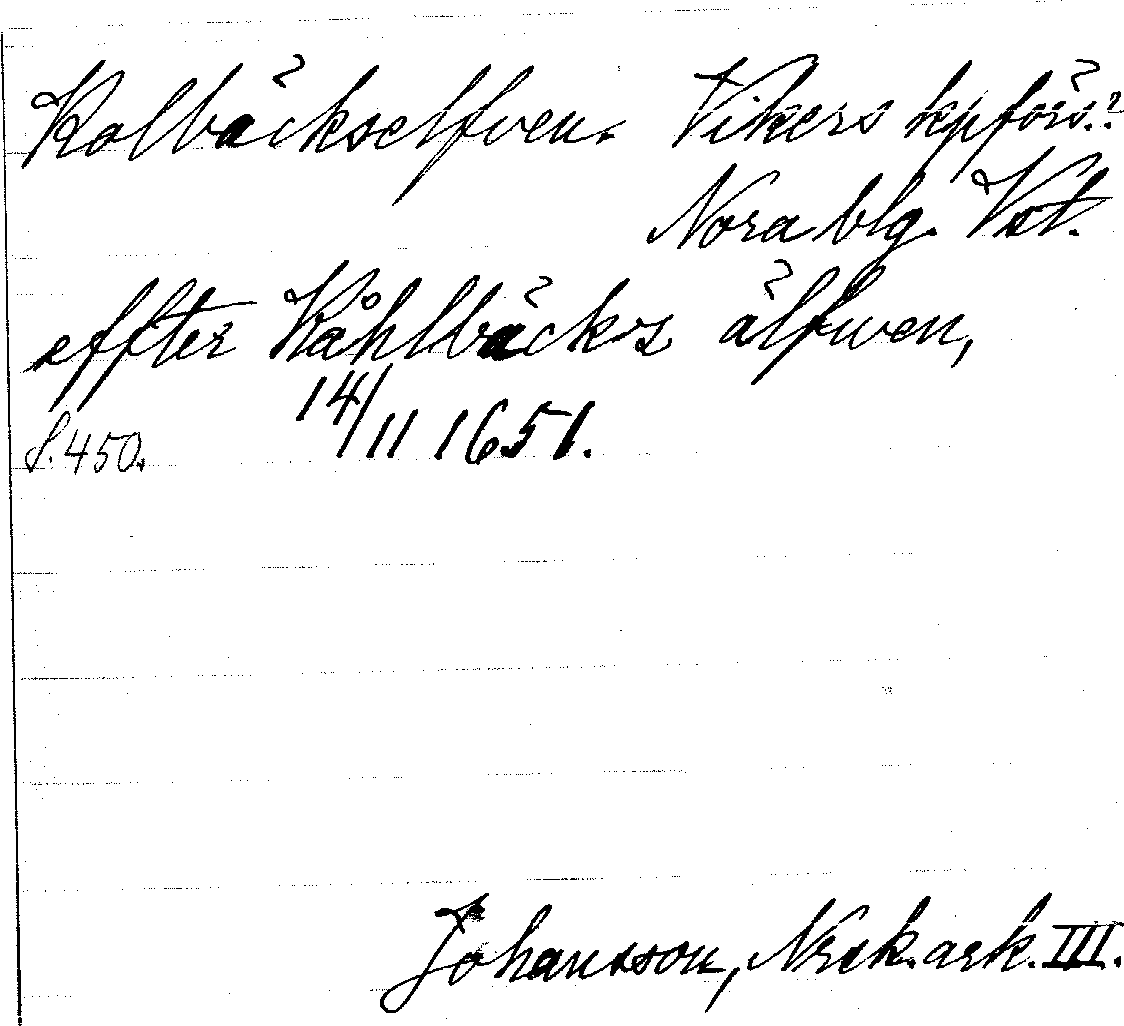 Kolbäckselfven. Vikers kpförs.?
Nora blg. Vst.
effter Kåhlbäcks älfwen,
S. 450. 14/11 1651.
Johansson, Nrck. ark. III.